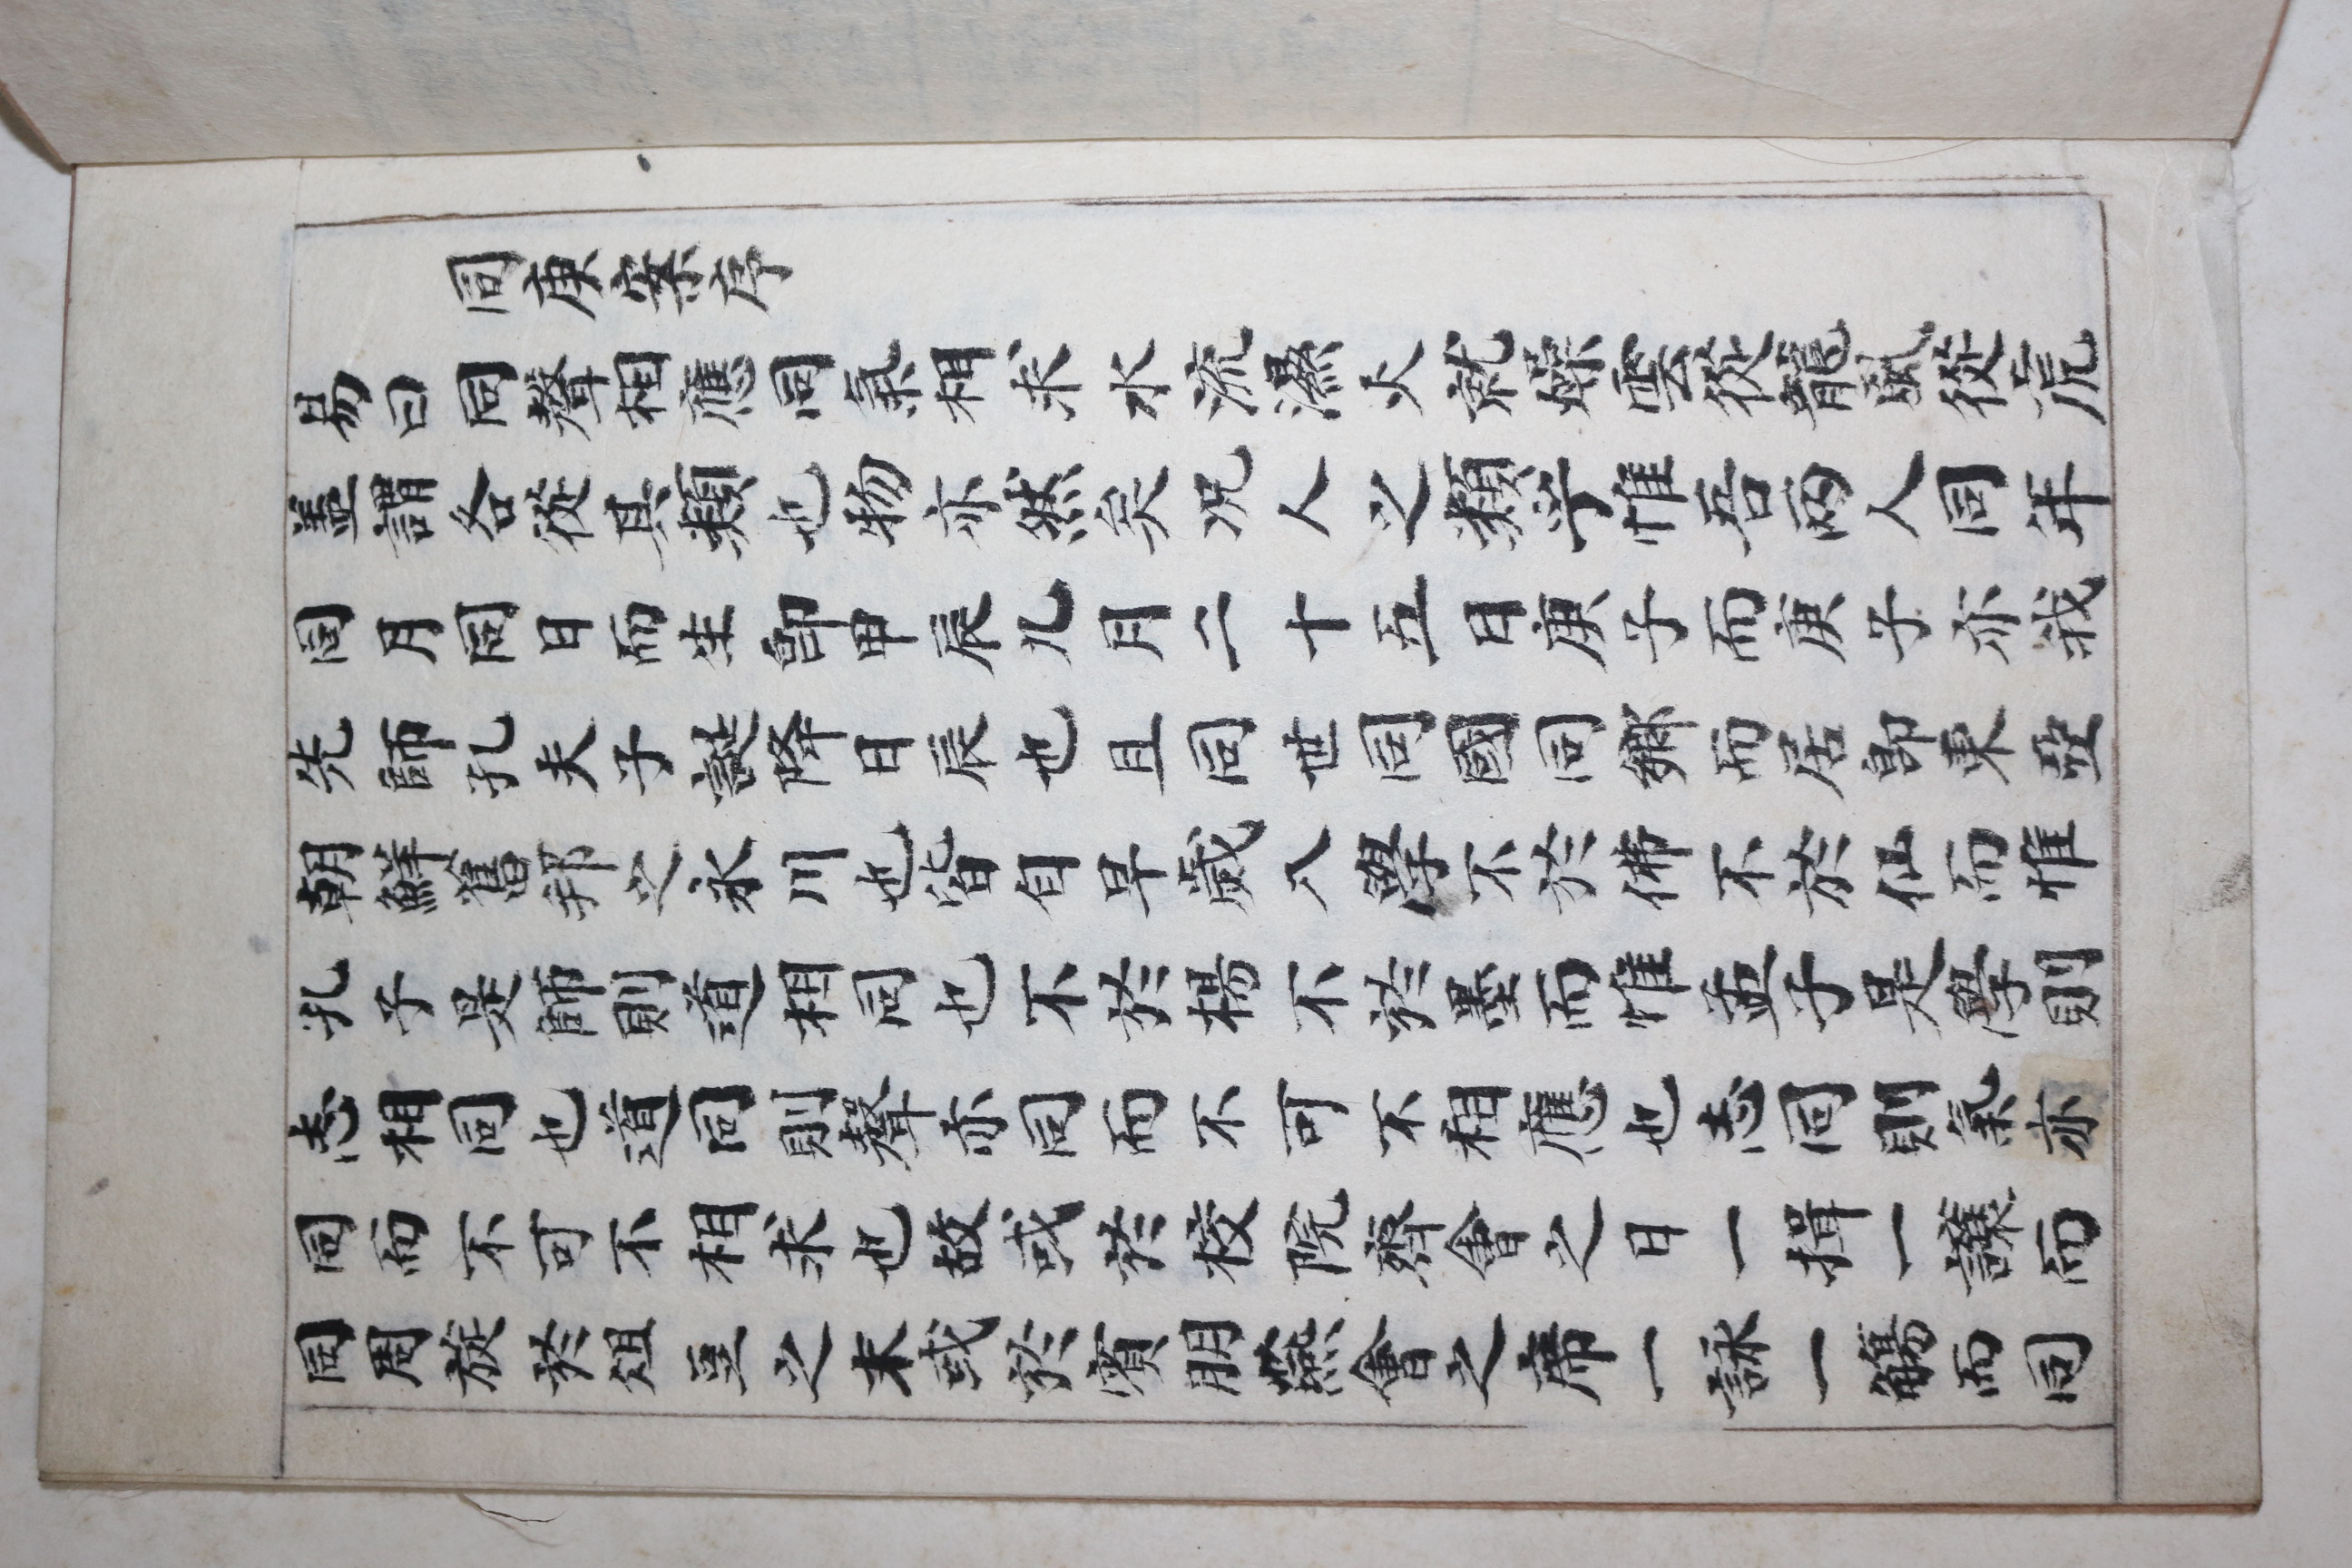 同庚案序
易曰同聲相應同氣相求水流濕火就燥雲從龍風從虎
盖謂各從其類也物亦然矣况人之類乎惟吾兩人同年
同月同日而生卽甲辰九月二十五日庚子而庚子亦我
先師孔夫子誕降日辰也且同世同國同鄉而居卽東亞
朝鮮舊邦之永川也皆自早歲入學不於佛不於仙而惟
孔子是師則道相同也不於楊不於墨而惟孟子是學則
志相同也道同則聲亦同而不可不相應也志同則氣亦
同而不可不相求也故或於校院齊會之日一揖一讓而
同周旋於俎豆之末或於賓朋燕會之席一詠一觴而同